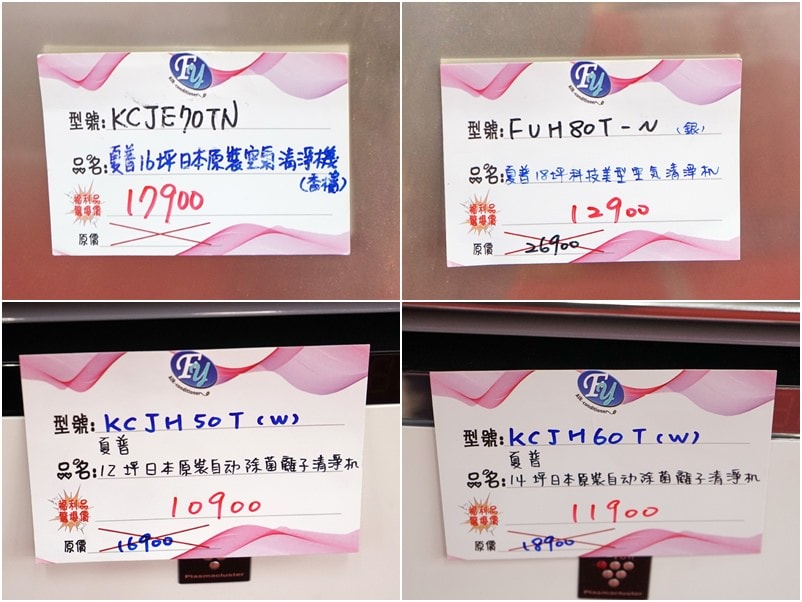 Fy
air-conditioner
型號:KCJE70TN
品名:夏普16坪日本原裝空氣清淨機
(香檳)
福利品
驚爆價
17900
原價
Fy
air-conditioner
型號:FUH80T-N (銀)
品名:夏普18坪科技美型空气清淨机
福利品
驚爆價
12900
原價 26900
Fy
air-conditioner
型號:KCJH50T(W)
夏普
品名:12坪日本原裝自动除菌離子清淨机
福利品
驚爆價
10900
原價 16900
Plasmacluster
Fy
air-conditioner
型號:KCJH60T(W)
夏普
品名:14坪日本原裝自动除菌離子清淨机
福利品
驚爆價
11900
原價 18900
Plasmacluster